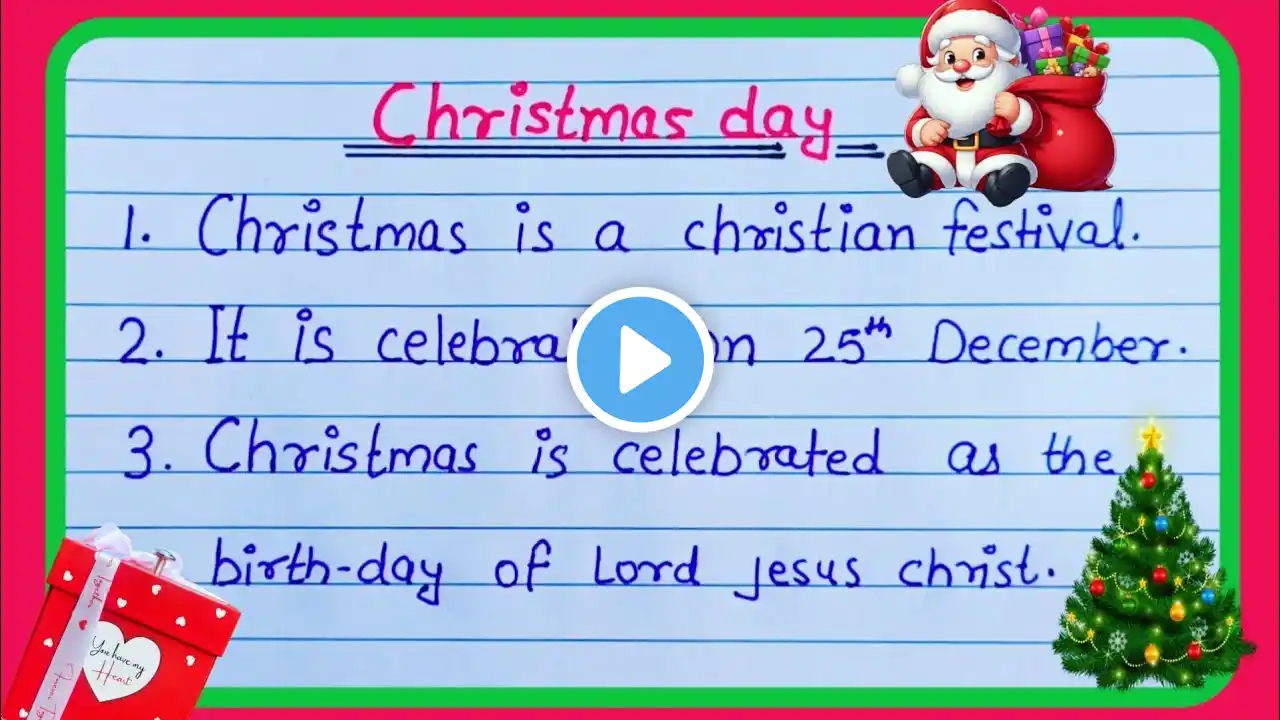 Christmas day
1. Christmas is a christian festival.
2. It is celebra on 25th December.
3. Christmas is celebrated as the
birth-day of Lord jesus christ.
You have my
Heart